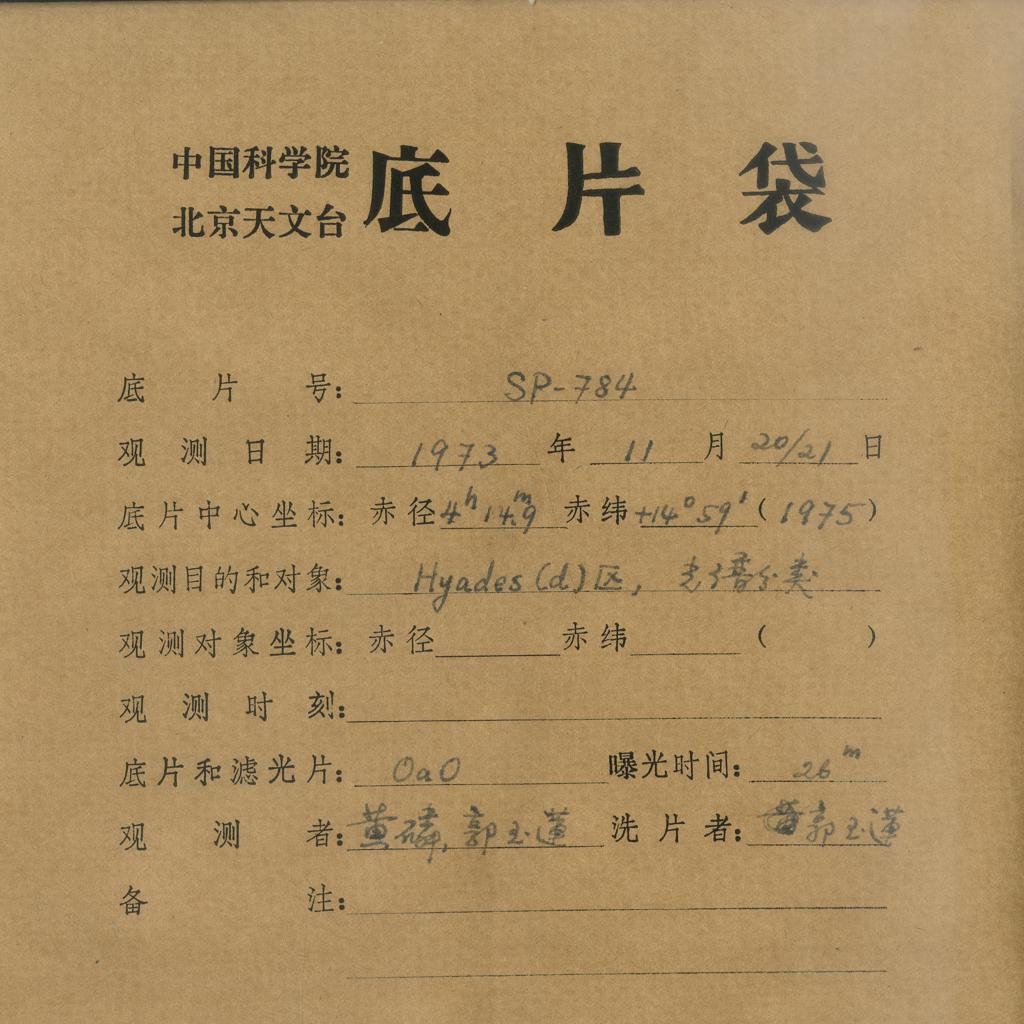 中国科学院
北京天文台
底片袋
底片号: SP-784
观测日期: 1973年11月20/21日
底片中心坐标: 赤径4h14m.9赤纬+14°59′(1975)
观测目的和对象: Hyades(d)区, 光谱分类
观测对象坐标: 赤径 赤纬 ( )
观测时刻:
底片和滤光片: OaO 曝光时间: 26m
观测者: 黄磷, 郭玉莲 洗片者: 郭玉莲
备注: